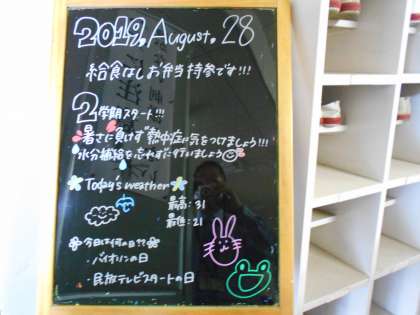 2019. August. 28
給食なしお弁当持参です!!!
2学期スタート!!!
暑さに負けず熱中症に気をつけましょう!!!
水分補給を忘れずに行いましょう
Today's weather
最高:31
最低:21
今日は何の日??
・バイオリンの日
・民放テレビスタートの日